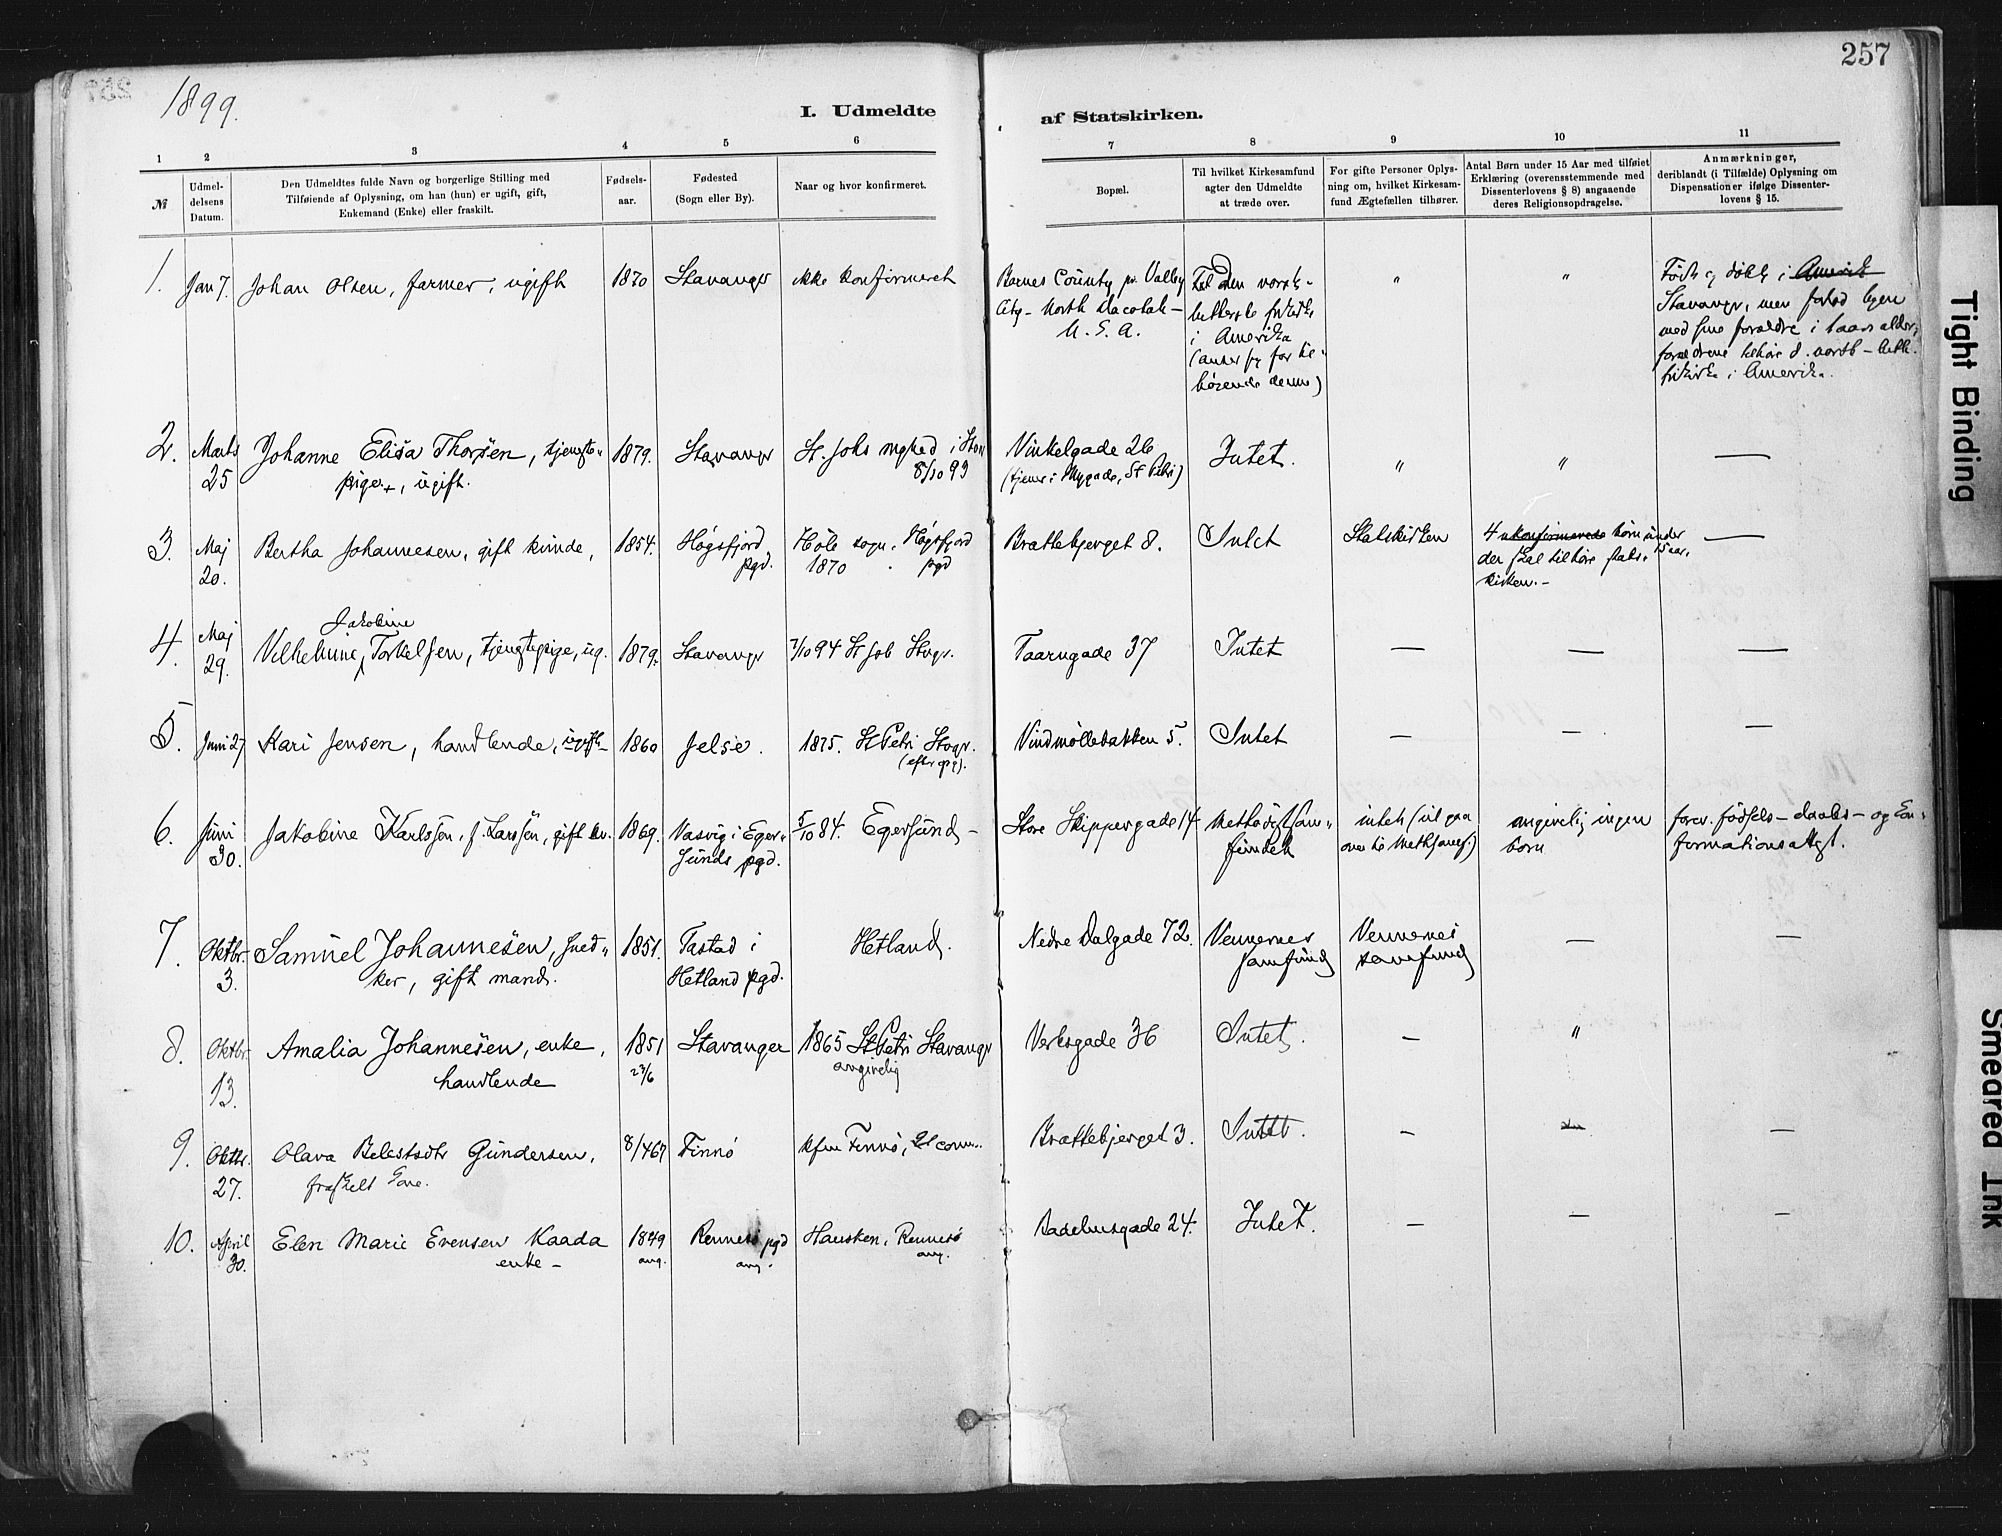 257
1899.
I. Udmeldte af Statskirken.
1 2 3 4 5 6 7 8 9 10 11
№
Udmel-
delsens
Datum.
Den Udmeldtes fulde Navn og borgerlige Stilling med
Tilføiende af Oplysning, om han (hun) er ugift, gift,
Enkemand (Enke) eller fraskilt.
Fødsels-
aar.
Fødested
(Sogn eller By).
Naar og hvor konfirmeret.
Bopæl.
Til hvilket Kirkesamfund
agter den Udmeldte
at træde over.
For gifte Personer Oplys-
ning om, hvilket Kirkesam-
fund Ægtefællen tilhører.
Antal Børn under 15 Aar med tilføiet
Erklæring (overensstemmende med
Dissenterlovens § 8) angaaende
deres Religionsopdragelse.
Anmærkninger,
deriblandt (i Tilfælde) Oplysning om
Dispensationer ifølge Dissenter-
lovens § 15.
1. Jan 7. Johan Olsen, farmer, ugift 1870 Stavanger ikke konfirmeret
Barnes County pr. Valley
City - North Dacotah -
U. S. A.
Til den norsk-
lutherske frikirke
i Amerika
(anser sig for til-
hørende denne)
" "
Født og døbt i Amerik
Stavanger, men forlod byen
med sine forældre i 1 aars alder;
forældrene tilhøre d. norsk-luth.
frikirke i Amerika.
2. Marts
25
Johanne Elisa Thorsen, tjeneste-
pige, ugift.
1879. Stavanger
St. Johs mghed i Stav
8/10 93
Vinkelgade 26
(tjener i Nygade, St Petri)
Intet. " " —
3. Maj
20.
Bertha Johannesen, gift kvinde, 1854.
Høgsfjord
pgd.
Høle sogn, Høgsfjord
1870 pgd
Brattebjerget 8. Intet Statskirken
4 ukonfirmerede børn under
15 aar,
der skal tilhøre stats-
kirken. -
—
4. Maj
29.
Jakobine
Vilhelmine, Torkelsen, tjenestepige, ug. 1879. Stavanger 7/10 94 St Joh Stvgr. Taarngade 37 Intet — — —
5. Juni 27 Kari Jensen, handlende, ugift 1860 Jelse. 1875. St Petri Stvgr.
(efter opg).
Vindmøllebakken 5. Intet — — —
6. Juni
30.
Jakobine Karlsen, f. Larsen, gift kv. 1869.
Vasvig i Eger-
sunds pgd.
5/10 84. Egersund -
Store Skippergade 14
Methodistsam-
fundet
intet (vil gaa
over til Methsamf.)
angivelig ingen
børn
forev. fødsels- daabs- og kon-
formationsattest.
7. Oktbr.
3.
Samuel Johannesen, sned-
ker, gift mand.
1851.
Tastad i
Hetland pgd.
Hetland. Nedre Dalgade 72.
Vennernes
samfund
Vennernes
samfund
— —
8. Oktbr
13.
Amalia Johannesen, enke,
handlende
1851
23/6
Stavanger
1865 St Petri Stavanger
angivelig
Verksgade 36 Intet. — "
9. Oktbr.
27.
Olava Gundersen,
fraskilt kone.
8/4 67 Finnø kfm Finnø, Brattebjerget 3. Intet. — — —
10. April
30.
Elen Marie Evensen Kaada
enke -
1849
ang.
Rennesø pgd
ang.
Hausken, Rennesø
ang.
Badehusgade 24. Intet. — — —
Tight Binding
Smeared Ink